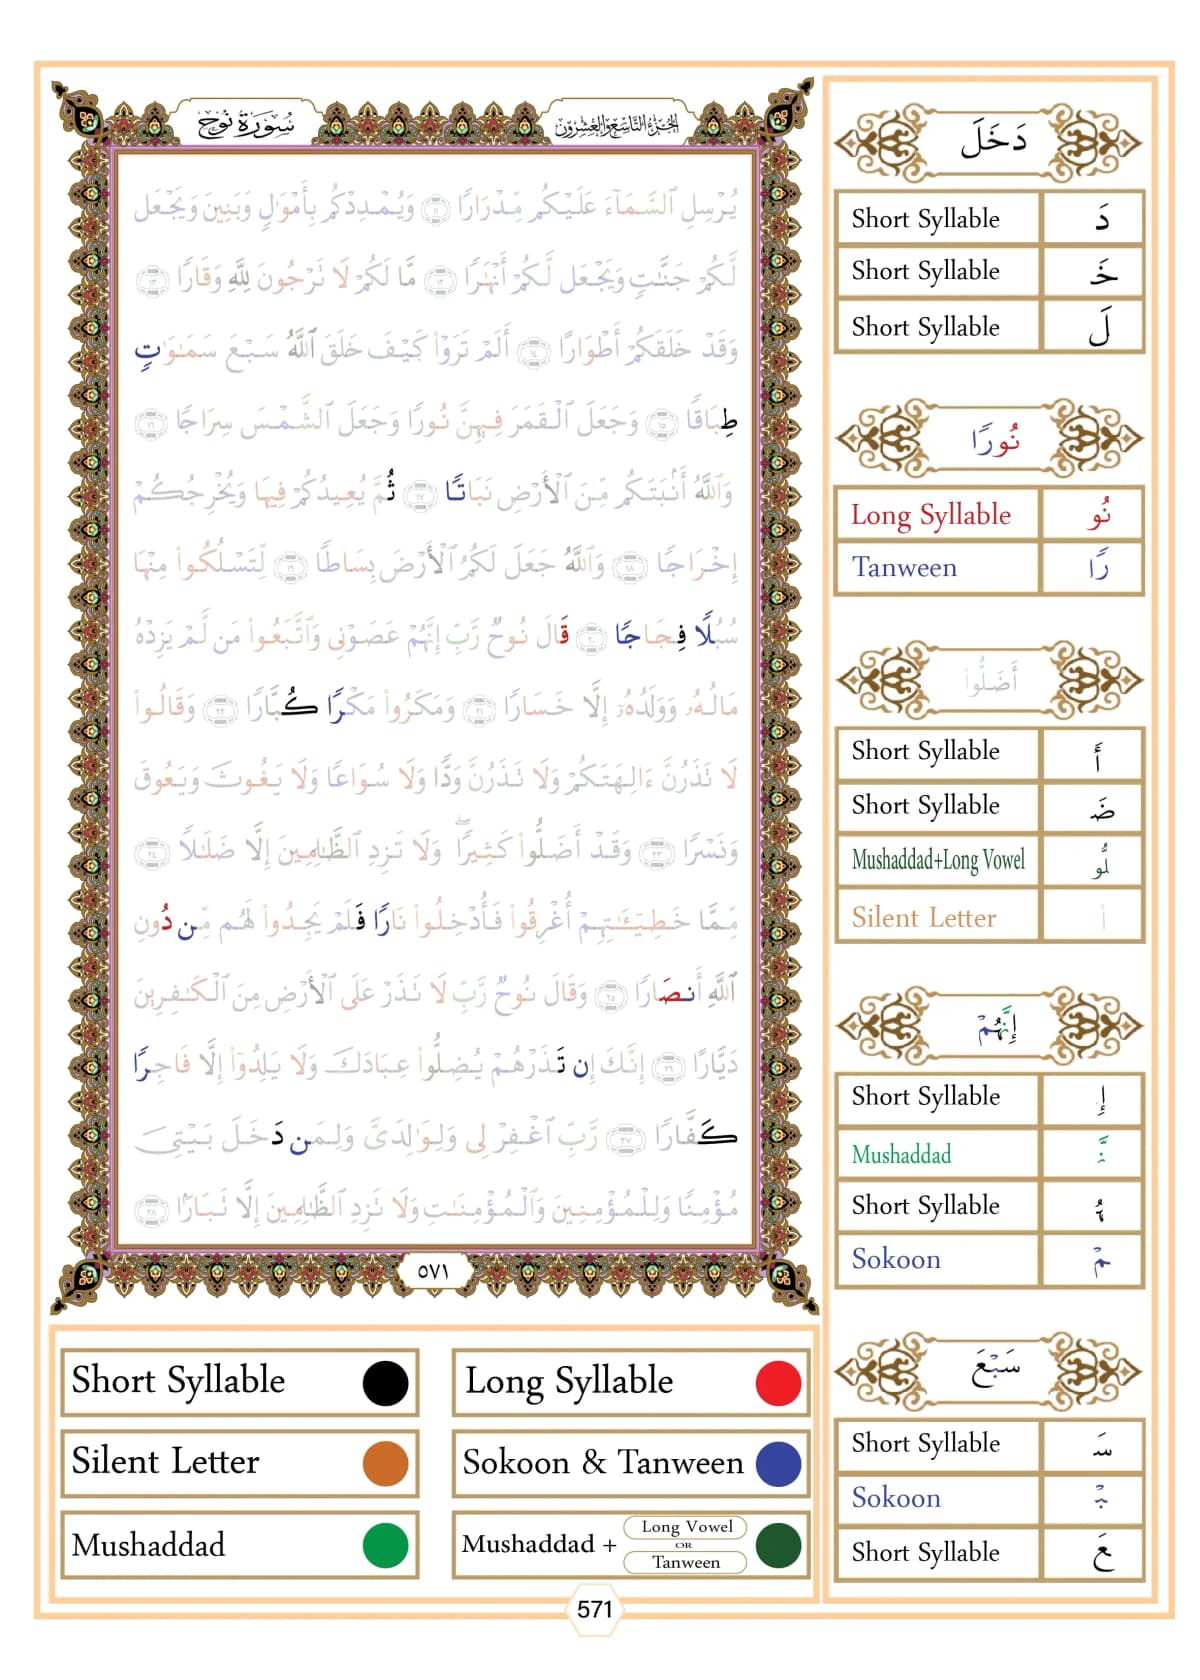 سُورَةُ نُوحٍ
الجُزءُ التَّاسِعُ وَالعِشْرُونَ
يُرْسِلِ ٱلسَّمَآءَ عَلَيْكُم مِّدْرَارًا ١١ وَيُمْدِدْكُم بِأَمْوَٰلٍ وَبَنِينَ وَيَجْعَل
لَّكُمْ جَنَّٰتٍ وَيَجْعَل لَّكُمْ أَنْهَٰرًا ١٢ مَّا لَكُمْ لَا تَرْجُونَ لِلَّهِ وَقَارًا ١٣
وَقَدْ خَلَقَكُمْ أَطْوَارًا ١٤ أَلَمْ تَرَوْا۟ كَيْفَ خَلَقَ ٱللَّهُ سَبْعَ سَمَٰوَٰتٍ
طِبَاقًا ١٥ وَجَعَلَ ٱلْقَمَرَ فِيهِنَّ نُورًا وَجَعَلَ ٱلشَّمْسَ سِرَاجًا ١٦
وَٱللَّهُ أَنۢبَتَكُم مِّنَ ٱلْأَرْضِ نَبَاتًا ١٧ ثُمَّ يُعِيدُكُمْ فِيهَا وَيُخْرِجُكُمْ
إِخْرَاجًا ١٨ وَٱللَّهُ جَعَلَ لَكُمُ ٱلْأَرْضَ بِسَاطًا ١٩ لِّتَسْلُكُوا۟ مِنْهَا
سُبُلًا فِجَاجًا ٢٠ قَالَ نُوحٌ رَّبِّ إِنَّهُمْ عَصَوْنِى وَٱتَّبَعُوا۟ مَن لَّمْ يَزِدْهُ
مَالُهُۥ وَوَلَدُهُۥٓ إِلَّا خَسَارًا ٢١ وَمَكَرُوا۟ مَكْرًا كُبَّارًا ٢٢ وَقَالُوا۟
لَا تَذَرُنَّ ءَالِهَتَكُمْ وَلَا تَذَرُنَّ وَدًّا وَلَا سُوَاعًا وَلَا يَغُوثَ وَيَعُوقَ
وَنَسْرًا ٢٣ وَقَدْ أَضَلُّوا۟ كَثِيرًا ۖ وَلَا تَزِدِ ٱلظَّٰلِمِينَ إِلَّا ضَلَٰلًا ٢٤
مِّمَّا خَطِيٓـَٰٔتِهِمْ أُغْرِقُوا۟ فَأُدْخِلُوا۟ نَارًا فَلَمْ يَجِدُوا۟ لَهُم مِّن دُونِ
ٱللَّهِ أَنصَارًا ٢٥ وَقَالَ نُوحٌ رَّبِّ لَا تَذَرْ عَلَى ٱلْأَرْضِ مِنَ ٱلْكَٰفِرِينَ
دَيَّارًا ٢٦ إِنَّكَ إِن تَذَرْهُمْ يُضِلُّوا۟ عِبَادَكَ وَلَا يَلِدُوٓا۟ إِلَّا فَاجِرًا
كَفَّارًا ٢٧ رَّبِّ ٱغْفِرْ لِى وَلِوَٰلِدَىَّ وَلِمَن دَخَلَ بَيْتِىَ
مُؤْمِنًا وَلِلْمُؤْمِنِينَ وَٱلْمُؤْمِنَٰتِ وَلَا تَزِدِ ٱلظَّٰلِمِينَ إِلَّا تَبَارًۢا ٢٨
٥٧١
دَخَلَ
Short Syllable دَ
Short Syllable خَ
Short Syllable لَ
نُورًا
Long Syllable نُو
Tanween رًا
أَضَلُّوا۟
Short Syllable أَ
Short Syllable ضَ
Mushaddad+Long Vowel لُّو
Silent Letter ا
إِنَّهُمْ
Short Syllable إِ
Mushaddad نَّ
Short Syllable هُ
Sokoon مْ
سَبْعَ
Short Syllable سَ
Sokoon بْ
Short Syllable عَ
Short Syllable
Long Syllable
Silent Letter
Sokoon & Tanween
Mushaddad
Mushaddad + Long Vowel OR Tanween
571